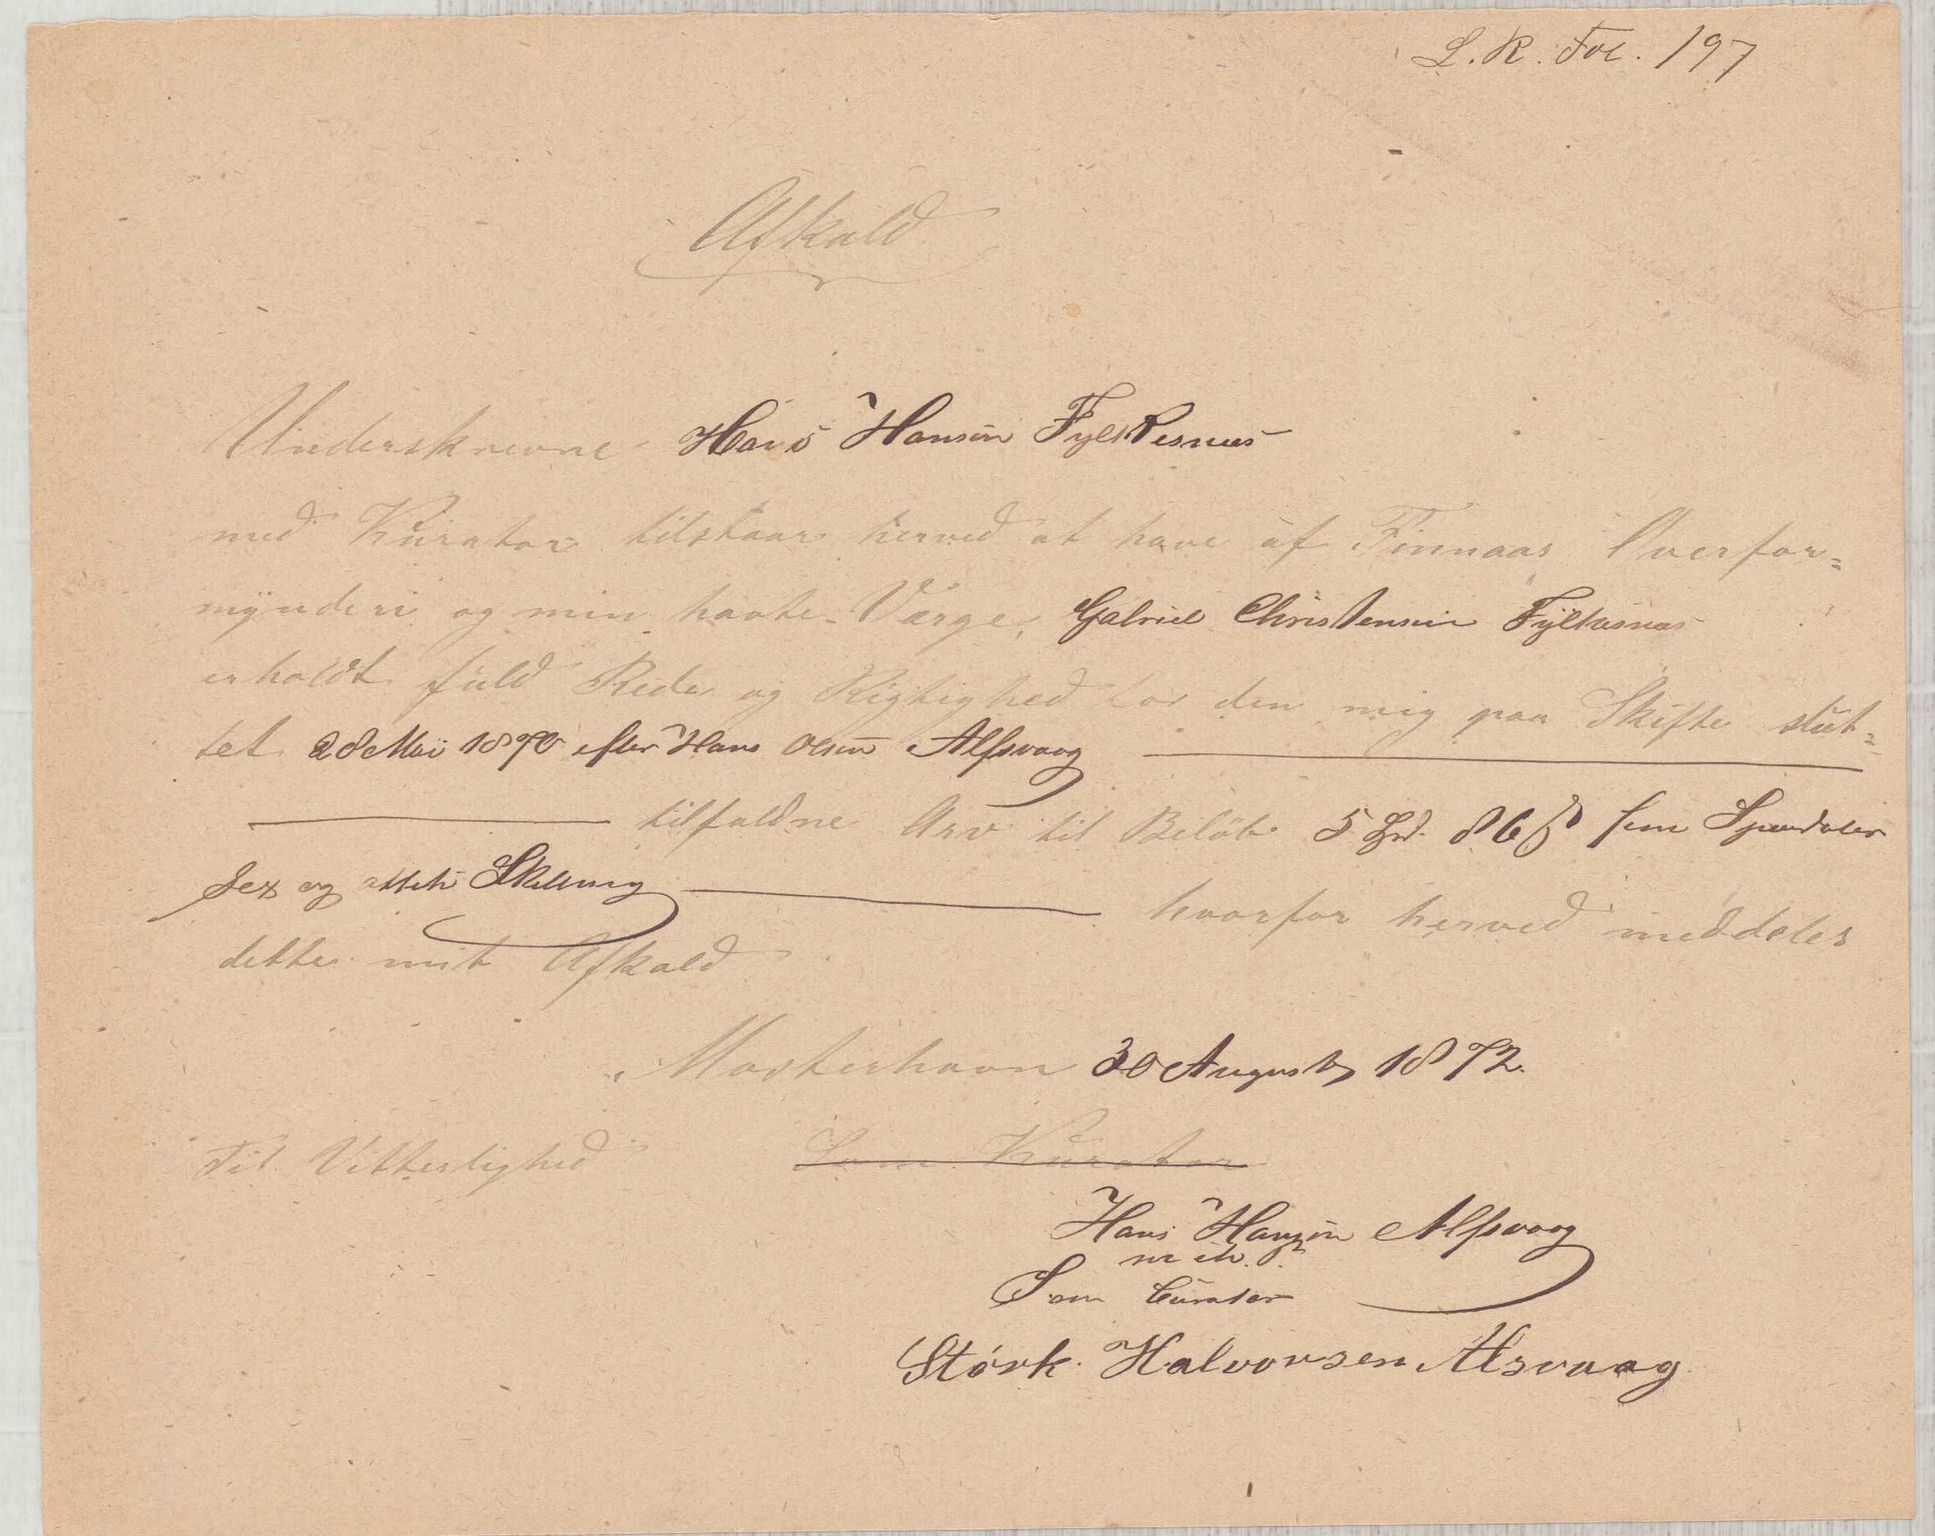 L. R. Fol. 197
Afkald
Underskrevne Hans Hansen Fylkesnæs
med Kurator tilstaar herved at have af Finnaas Overfor=
mynderi og min havte Værge, Gabriel Christensen Fylkesnæs
erholdt fuld Rede og Rigtighed for den mig paa Skifte slut=
tet 28 Mai 1870 efter Hans Olsen Alfsvaag
tilfaldne Arv til Beløb 5 Spd. 86 ß fem Speciedaler
sex og otteti Skilling hvorfor herved meddeles
dette mit Afkald
Mosterhavn 30 August 1872.
Til Vitterlighed Som Kurator
Hans Hansøn Alfsvaag
m. P.
Som Curator
Størk Halvorsen Alsvaag